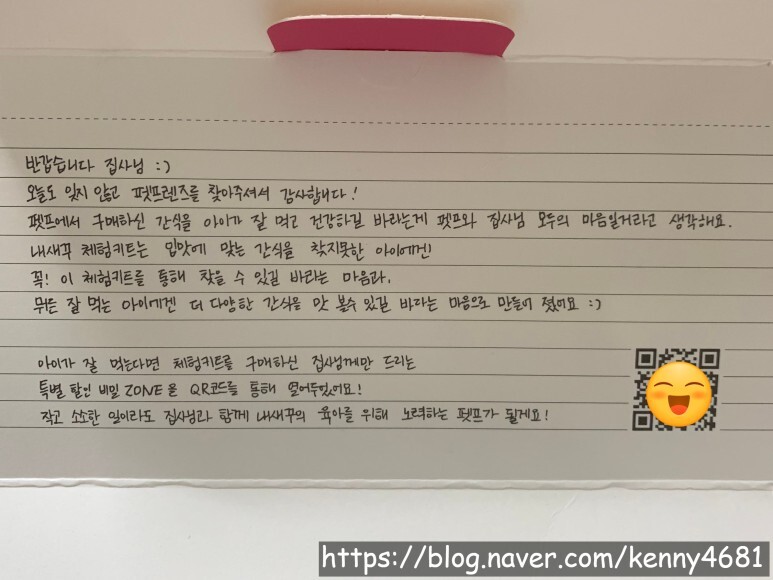 반갑습니다 집사님 :)
오늘도 잊지 않고 펫프렌즈를 찾아주셔서 감사합니다!
펫프에서 구매하신 간식을 아이가 잘 먹고 건강하길 바라는게 펫프와 집사님 모두의 마음일거라고 생각해요.
내새꾸 체험키트는 입맛에 맞는 간식을 찾지못한 아이에겐
꼭! 이 체험키트를 통해 찾을 수 있길 바라는 마음과,
뭐든 잘 먹는 아이에겐 더 다양한 간식을 맛 볼수 있길 바라는 마음으로 만들어 졌어요 :)
아이가 잘 먹는다면 체험키트를 구매하신 집사님께만 드리는
특별 할인 비밀 ZONE을 QR코드를 통해 열어두었어요!
작고 소소한 일이라도 집사님과 함께 내새꾸의 육아를 위해 노력하는 펫프가 될게요!
https://blog.naver.com/kenny4681